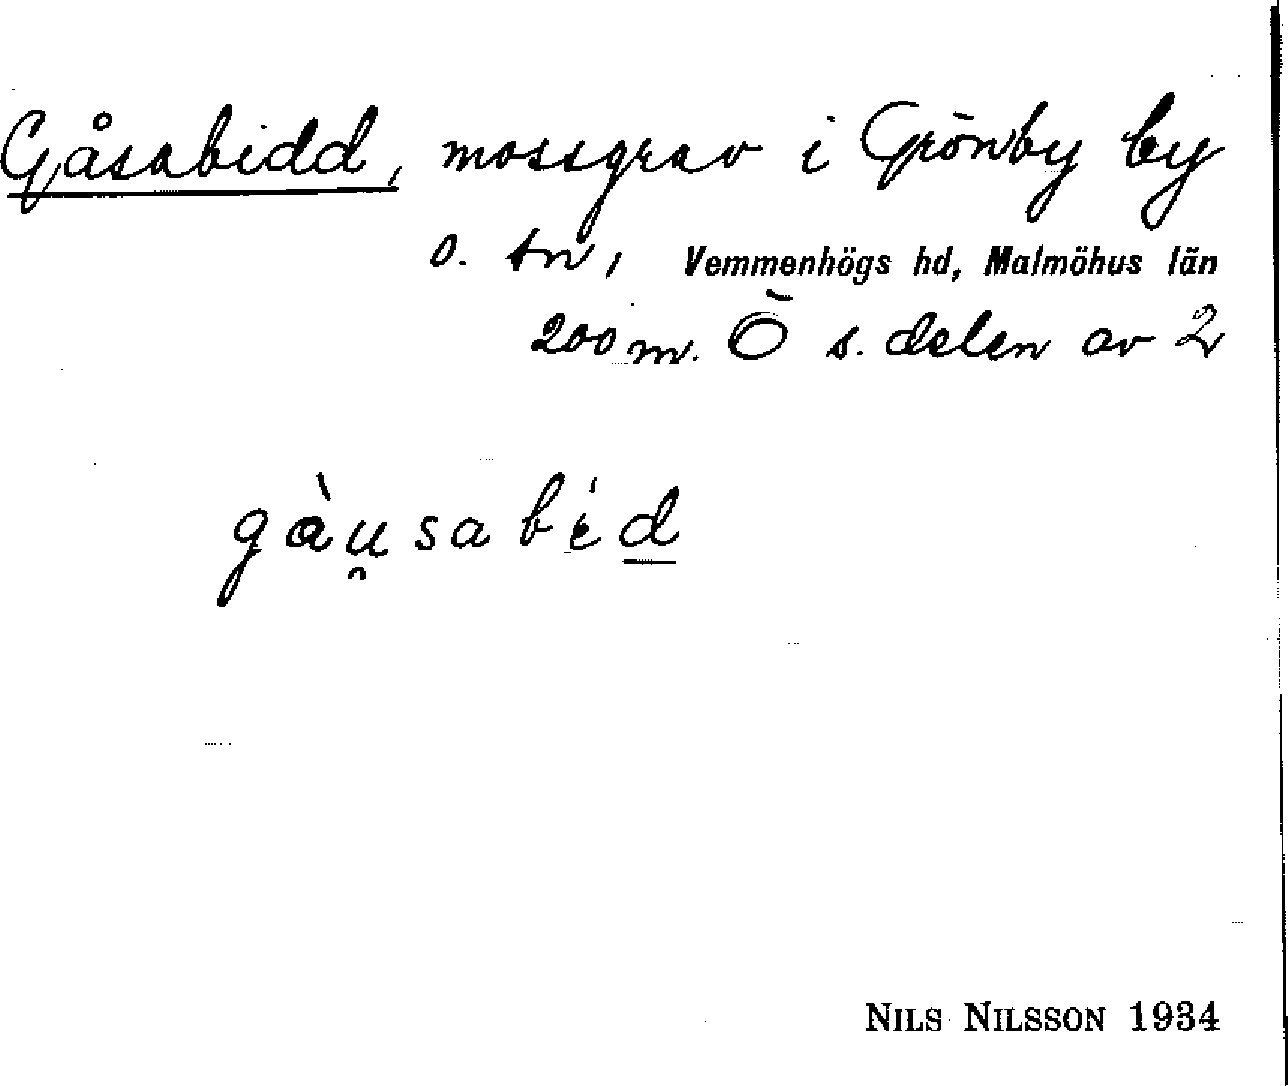 Gåsabidd, mossgrav i Grönby by
o. sn, Vemmenhögs hd, Malmöhus län
200 m. Ö s. delen av 2
gàu̯sabi̇́d
NILS NILSSON 1934